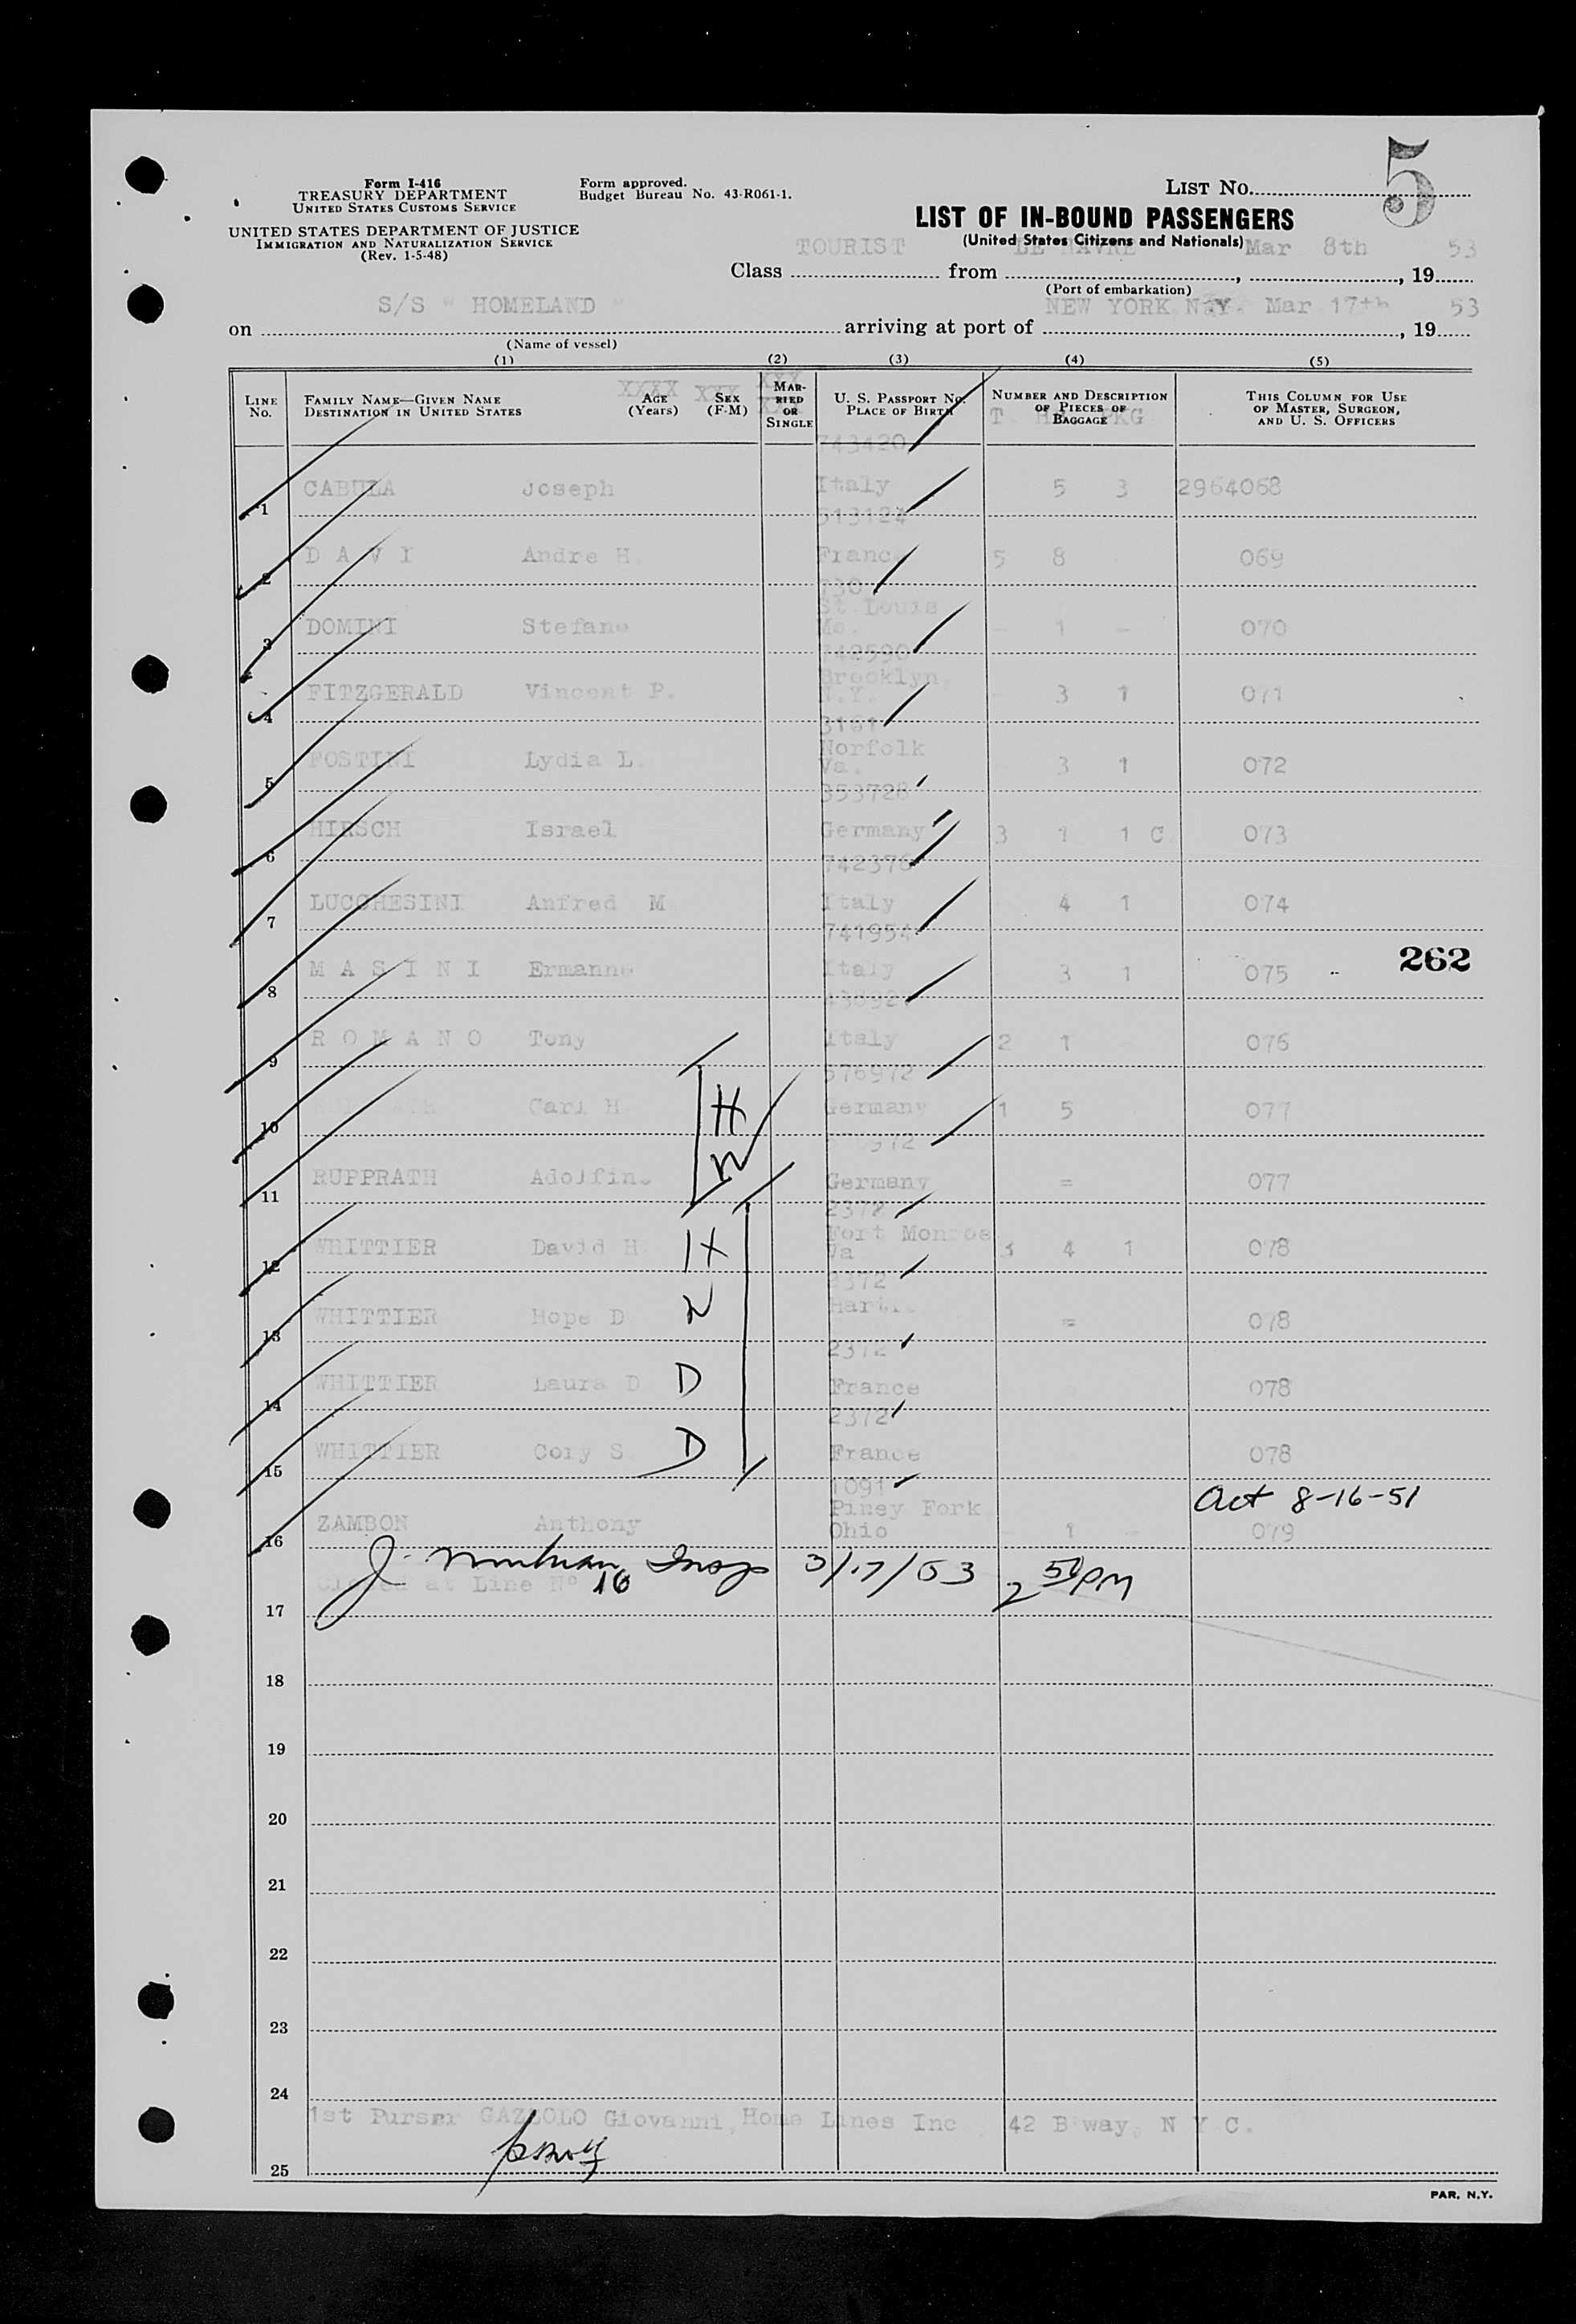 5
Form I-416
TREASURY DEPARTMENT
UNITED STATES CUSTOMS SERVICE
UNITED STATES DEPARTMENT OF JUSTICE
IMMIGRATION AND NATURALIZATION SERVICE
(Rev. 1-5-48)
Form approved.
Budget Bureau No. 43-R061-1.
LIST No.
LIST OF IN-BOUND PASSENGERS
(United States Citizens and Nationals)
Class TOURIST from LE HAVRE, Mar 8th, 19 53
(Port of embarkation)
on S/S " HOMELAND " arriving at port of NEW YORK N.Y. Mar 17th, 19 53
(Name of vessel)
(1) (2) (3) (4) (5)
LINE No. FAMILY NAME—GIVEN NAME DESTINATION IN UNITED STATES XXXX AGE (Years) XXX SEX (F-M) XXX MARRIED OR SINGLE U. S. PASSPORT No. PLACE OF BIRTH NUMBER AND DESCRIPTION OF PIECES OF BAGGAGE T PKG THIS COLUMN FOR USE OF MASTER, SURGEON, AND U. S. OFFICERS
743420
1 CABULA Joseph Italy 5 3 2964068
513124
2 D A V I Andre H. France 5 8 069
730
3 DOMINI Stefano St. Louis Mo. - 1 - 070
742590
4 FITZGERALD Vincent P. Brooklyn, N.Y. - 3 1 071
3161
5 FOSTINI Lydia L. Norfolk Va. 3 1 072
353728
6 HIRSCH Israel Germany 3 1 1 C 073
742376
7 LUCCHESINI Anfred M Italy 4 1 074
741954
8 M A S I N I Ermanno Italy 3 1 075
262
9 R O M A N O Tony Italy 2 1 076
576972
10 Carl H H Germany 1 5 077
11 RUPPRATH Adolfine Germany = 077
2372
12 WHITTIER David H. H Fort Monroe Va 4 1 078
2372
13 WHITTIER Hope D = 078
2372
14 WHITTIER Laura D D France 078
2372
15 WHITTIER Cory S D France 078
1091
Act 8-16-51
16 ZAMBON Anthony Piney Fork Ohio - 1 - 079
J. Insp 3/17/53 2 50 PM
17 Closed at Line No 16
18
19
20
21
22
23
24
1st Purser GAZZOLO Giovanni, Home Lines Inc 42 B'way, N Y C.
25
PAR, N.Y.